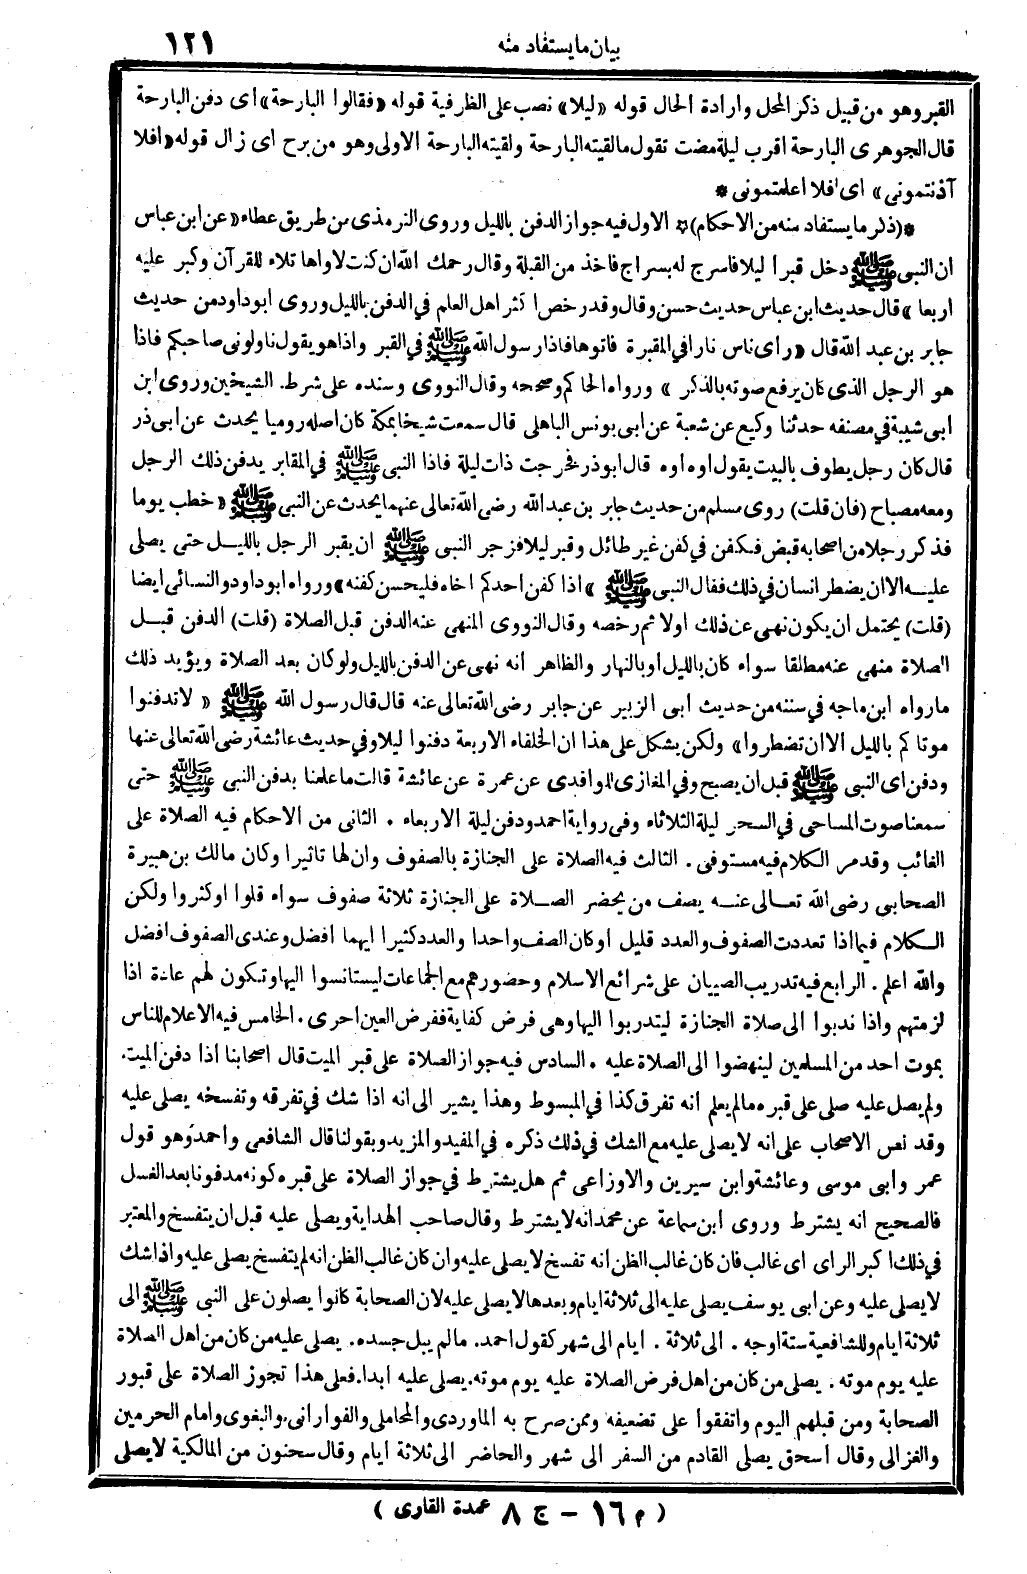 بيان ما يستفاد منه ١٢١
القبر وهو من قبيل ذكر المحل وارادة الحال قوله «ليلا» نصب على الظرفية قوله «فقالوا البارحة» اى دفن البارحة
قال الجوهرى البارحة اقرب ليلة مضت تقول مالقيته البارحة ولقيته البارحة الاولى وهو من برح اى زال قوله «افلا
آذنتمونى» اى افلا اعلمتمونى *
*(ذكر ما يستفاد منه من الاحكام)* الاول فيه جواز الدفن بالليل وروى الترمذى من طريق عطاء «عن ابن عباس
ان النبى ﷺ دخل قبرا ليلا فاسرج له بسراج فاخذ من القبلة وقال رحمك الله ان كنت لاواها تلاء للقرآن وكبر عليه
اربعا» قال حديث ابن عباس حديث حسن وقال وقد رخص اكثر اهل العلم في الدفن بالليل وروى ابو داود من حديث
جابر بن عبد الله قال «رأى ناس نارا في المقبرة فاتوها فاذا رسول الله ﷺ في القبر واذا هو يقول ناولونى صاحبكم فاذا
هو الرجل الذى كان يرفع صوته بالذكر» ورواه الحاكم وصححه وقال النووى وسنده على شرط الشيخين وروى ابن
ابى شيبة في مصنفه حدثنا وكيع عن شعبة عن ابى يونس الباهلى قال سمعت شيخا بمكة كان اصله روميا يحدث عن ابى ذر
قال كان رجل يطوف بالبيت يقول اوه اوه قال ابو ذر فخرجت ذات ليلة فاذا النبى ﷺ في المقابر يدفن ذلك الرجل
ومعه مصباح (فان قلت) روى مسلم من حديث جابر بن عبد الله رضى الله تعالى عنهما يحدث عن النبى ﷺ «خطب يوما
فذكر رجلا من اصحابه قبض فكفن في كفن غير طائل وقبر ليلا فزجر النبى ﷺ ان يقبر الرجل بالليل حتى يصلى
عليه الا ان يضطر انسان في ذلك فقال النبى ﷺ «اذا كفن احدكم اخاه فليحسن كفنه» ورواه ابو داود والنسائى ايضا
(قلت) يحتمل ان يكون نهى عن ذلك اولا ثم رخصه وقال النووى المنهى عنه الدفن قبل الصلاة (قلت) الدفن قبل
الصلاة منهى عنه مطلقا سواء كان بالليل او بالنهار والظاهر انه نهى عن الدفن بالليل ولو كان بعد الصلاة ويؤيد ذلك
مارواه ابن ماجه في سننه من حديث ابى الزبير عن جابر رضى الله تعالى عنه قال قال رسول الله ﷺ «لا تدفنوا
موتاكم بالليل الا ان تضطروا» ولكن يشكل على هذا ان الخلفاء الاربعة دفنوا ليلا وفي حديث عائشة رضى الله تعالى عنها
ودفن اى النبى ﷺ قبل ان يصبح وفي المغازى للواقدى عن عمرة عن عائشة قالت ما علمنا بدفن النبى ﷺ حتى
سمعنا صوت المساحى في السحر ليلة الثلاثاء وفى رواية احمد ودفن ليلة الاربعاء . الثانى من الاحكام فيه الصلاة على
الغائب وقد مر الكلام فيه مستوفى . الثالث فيه الصلاة على الجنازة بالصفوف وان لها تاثيرا وكان مالك بن هبيرة
الصحابى رضى الله تعالى عنه يصف من يحضر الصلاة على الجنازة ثلاثة صفوف سواء قلوا او كثروا ولكن
الكلام فيما اذا تعددت الصفوف والعدد قليل او كان الصف واحدا والعدد كثيرا ايهما افضل وعندى الصفوف افضل
والله اعلم . الرابع فيه تدريب الصبيان على شرائع الاسلام وحضورهم مع الجماعات ليستانسوا اليها وتكون لهم عادة اذا
لزمتهم واذا ندبوا الى صلاة الجنازة ليتدربوا اليها وهى فرض كفاية ففرض العين احرى . الخامس فيه الاعلام للناس
بموت احد من المسلمين لينهضوا الى الصلاة عليه . السادس فيه جواز الصلاة على قبر الميت قال اصحابنا اذا دفن الميت
ولم يصل عليه صلى على قبره مالم يعلم انه تفرق كذا في المبسوط وهذا يشير الى انه اذا شك في تفرقه وتفسخه يصلى عليه
وقد نص الاصحاب على انه لا يصلى عليه مع الشك في ذلك ذكره في المفيد والمزيد وبقولنا قال الشافعى واحمد وهو قول
عمر وابى موسى وعائشة وابن سيرين والاوزاعى ثم هل يشترط في جواز الصلاة على قبره كونه مدفونا بعد الغسل
فالصحيح انه يشترط وروى ابن سماعة عن محمد انه لا يشترط وقال صاحب الهداية ويصلى عليه قبل ان يتفسخ والمعتبر
في ذلك اكبر الراى اى غالب فان كان غالب الظن انه تفسخ لا يصلى عليه وان كان غالب الظن انه لم يتفسخ يصلى عليه واذا شك
لا يصلى عليه وعن ابى يوسف يصلى عليه الى ثلاثة ايام وبعدها لا يصلى عليه لان الصحابة كانوا يصلون على النبى ﷺ الى
ثلاثة ايام وللشافعية ستة اوجه . الى ثلاثة . ايام الى شهر كقول احمد . مالم يبل جسده . يصلى عليه من كان من اهل الصلاة
عليه يوم موته . يصلى من كان من اهل فرض الصلاة عليه يوم موته . يصلى عليه ابدا . فعلى هذا تجوز الصلاة على قبور
الصحابة ومن قبلهم اليوم واتفقوا على تضعيفه وممن صرح به الماوردى والمحاملى والفورانى . والبغوى وامام الحرمين
والغزالى وقال اسحق يصلى القادم من السفر الى شهر والحاضر الى ثلاثة ايام وقال سحنون من المالكية لا يصلى
(م ١٦ – ج ٨ عمدة القارى)